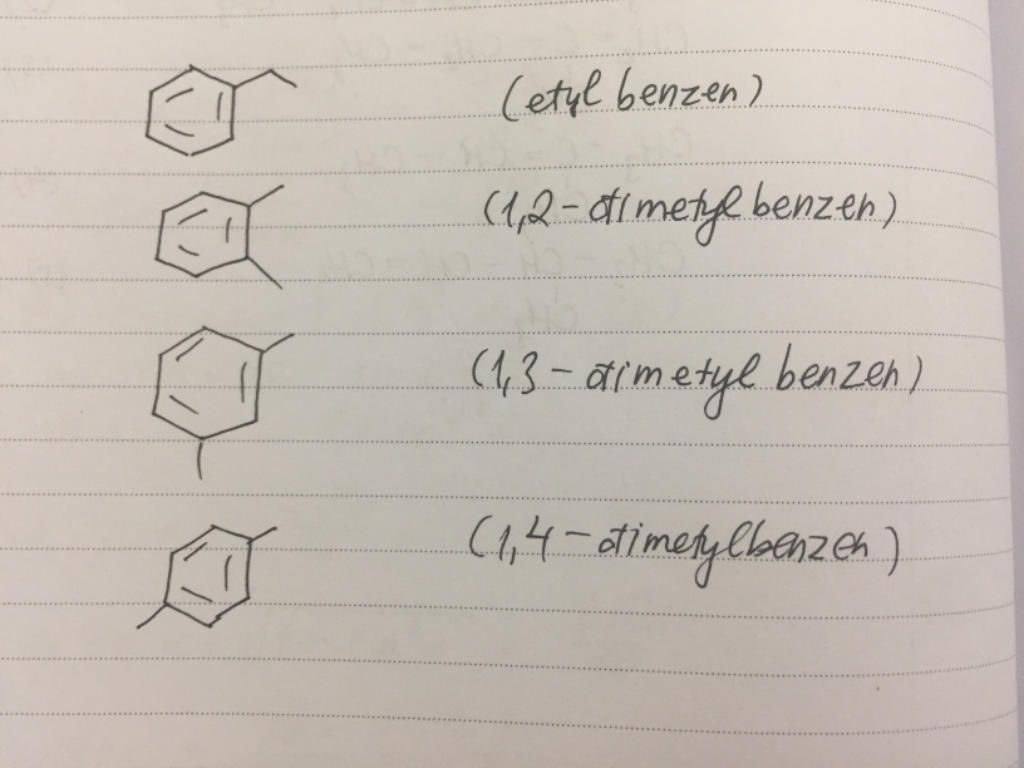 (etyl benzen)
(1,2-đimetyl benzen)
(1,3-đimetyl benzen)
(1,4-đimetylbenzen)